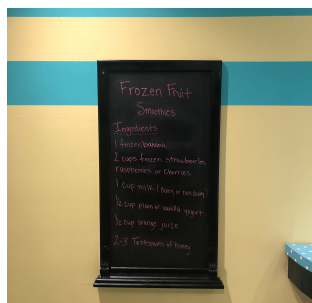 Frozen Fruit
Smoothies
Ingredients
1 frozen banana
2 cups frozen strawberries
raspberries or cherries
1 cup milk (dairy or nondairy)
1/2 cup plain or vanilla yogurt
1/2 cup orange juice
2-3 Tablespoons of honey